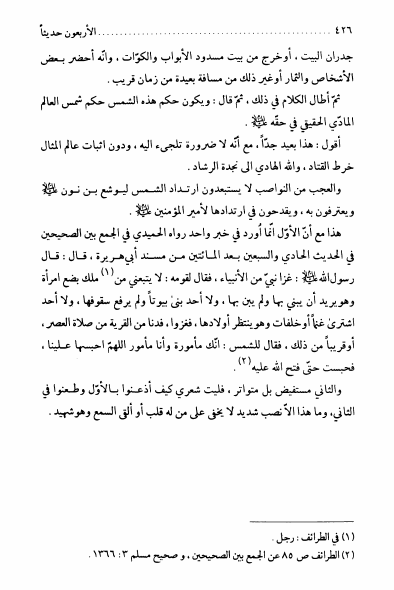 ٤٢٦ ........................................ الأربعون حديثاً
جدران البيت ، أو خرج من بيت مسدود الأبواب والكوّات ، وأنّه أحضر بعض
الأشخاص والثمار أو غير ذلك من مسافة بعيدة من زمان قريب .
ثمّ أطال الكلام في ذلك ، ثمّ قال : ويكون حكم هذه الشمس حكم شمس العالم
المادّي الحقيقي في حقّه ﷺ .
أقول : هذا بعيد جدّاً ، مع أنّه لا ضرورة تلجىء اليه ، ودون اثبات عالم المثال
خرط القتاد ، والله الهادي الى نجدة الرشاد .
والعجب من النواصب لا يستبعدون ارتداد الشمس ليوشع بن نون
ويعترفون به ، ويقدحون في ارتدادها لأمير المؤمنين .
هذا مع أنّ الأوّل انّما أورد في خبر واحد رواه الحميدي في الجمع بين الصحيحين
في الحديث الحادي والسبعين بعد المائتين من مسند أبي هريرة ، قال : قال
رسول الله ﷺ : غزا نبيّ من الأنبياء ، فقال لقومه : لا يتبعني من(١) ملك بضع امرأة
وهو يريد أن يبني بها ولم يبن بها ، ولا أحد بنىٰ بيوتاً ولم يرفع سقوفها ، ولا أحد
اشترىٰ غنماً أو خلفات وهو ينتظر أولادها ، فغزوا، فدنا من القرية من صلاة العصر ،
أو قريباً من ذلك ، فقال للشمس : انّك مأمورة وأنا مأمور اللهمّ احبسها علينا ،
فحبست حتّى فتح الله عليه(٢) .
والثاني مستفيض بل متواتر ، فليت شعري كيف أذعنوا بالأوّل وطعنوا في
الثاني، وما هذا الاّ نصب شديد لا يخفى على من له قلب أو ألقى السمع وهو شهيد .
(١) في الطرائف : رجل .
(٢) الطرائف ص ٨٥ عن الجمع بين الصحيحين ، و صحيح مسلم ٣ : ١٣٦٦ .